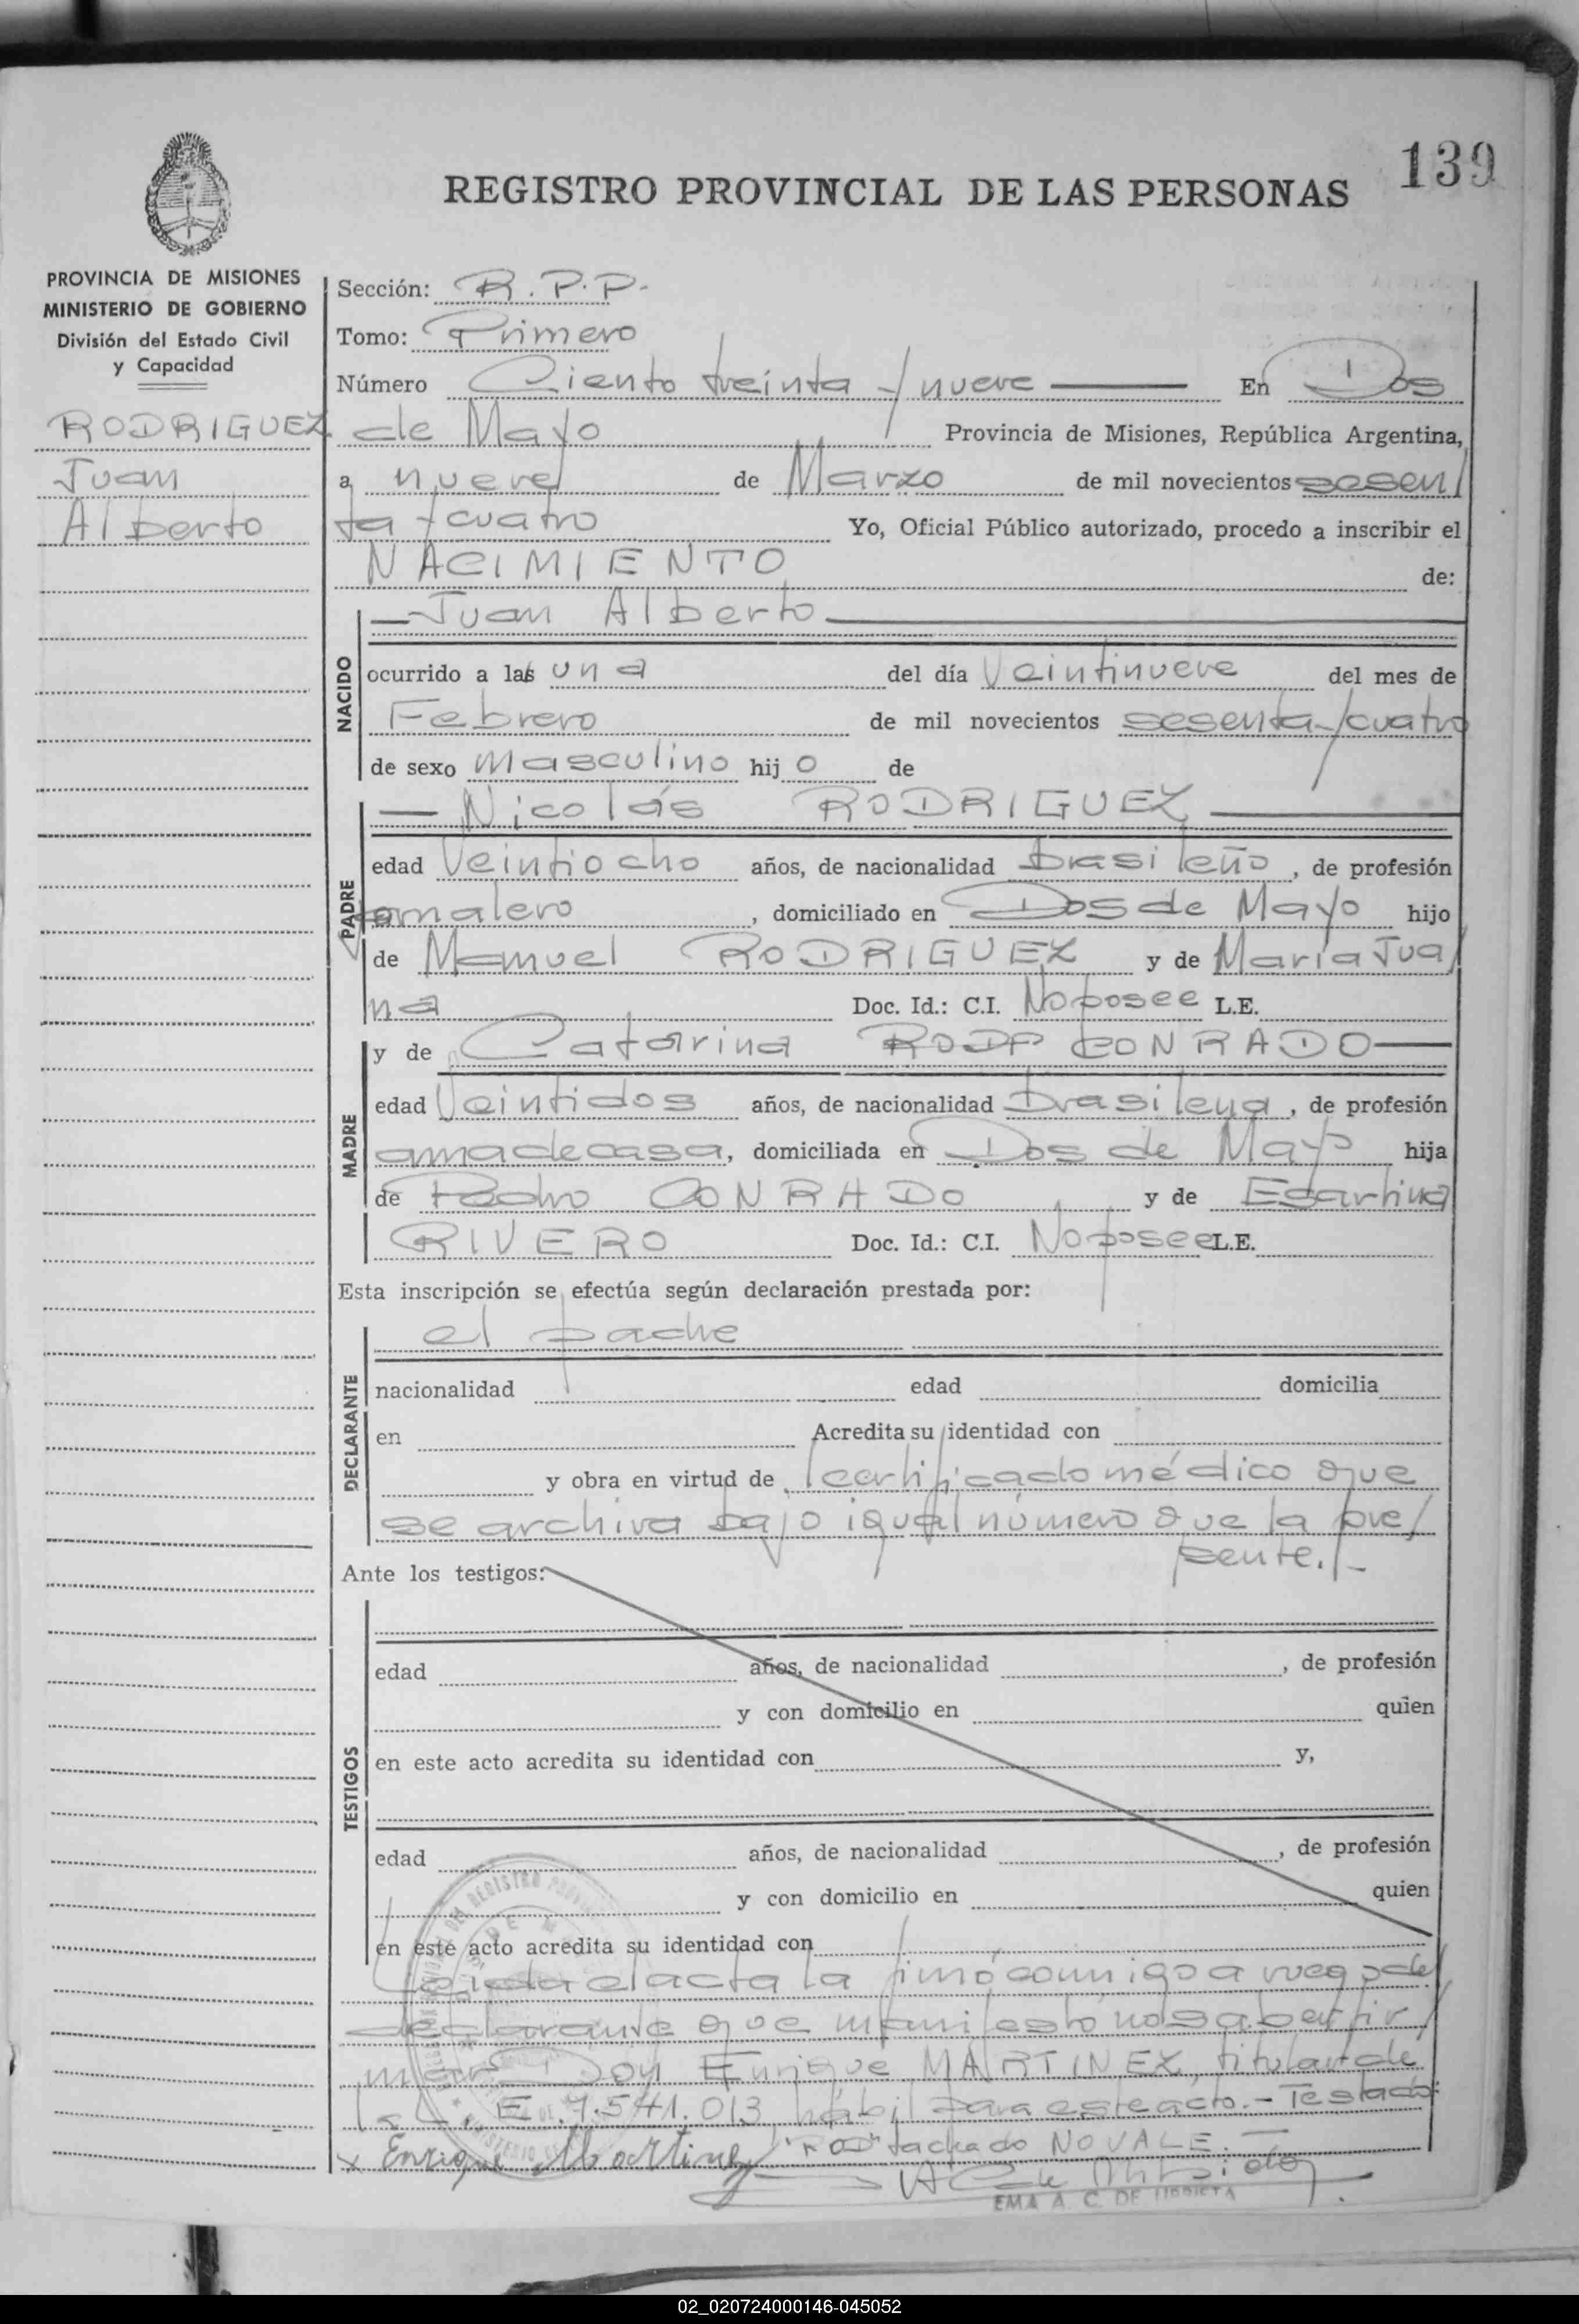 139
REGISTRO PROVINCIAL DE LAS PERSONAS
PROVINCIA DE MISIONES
MINISTERIO DE GOBIERNO
División del Estado Civil
y Capacidad
RODRIGUEZ
Juan
Alberto
Sección: R.P.P.
Tomo: Primero
Número Ciento treinta y nueve En Dos
de Mayo Provincia de Misiones, República Argentina,
a nueve de Marzo de mil novecientos sesen/
ta y cuatro Yo, Oficial Público autorizado, procedo a inscribir el
NACIMIENTO de:
NACIDO
Juan Alberto
ocurrido a las una del día Veintinueve del mes de
Febrero de mil novecientos sesenta y cuatro
de sexo masculino hij o de
PADRE
Nicolás RODRIGUEZ
edad Veintiocho años, de nacionalidad brasileño, de profesión
domiciliado en Dos de Mayo hijo
de Manuel RODRIGUEZ y de María Jua/
na Doc. Id.: C.I. No posee L.E.
MADRE
y de Catarina RODP CONRADO
edad Veintidos años, de nacionalidad brasileña, de profesión
ama de casa, domiciliada en Dos de Mayo hija
de Pedro CONRADO y de
RIVERO Doc. Id.: C.I. No posee L.E.
Esta inscripción se efectúa según declaración prestada por:
DECLARANTE
el padre
nacionalidad edad domicilia
en Acredita su identidad con
y obra en virtud de certificado médico que
se archiva bajo igual número que la pre/
sente.-
Ante los testigos:
TESTIGOS
edad años, de nacionalidad , de profesión
y con domicilio en quien
en este acto acredita su identidad con y,
edad años, de nacionalidad , de profesión
y con domicilio en quien
en este acto acredita su identidad con
Leida el acta la firmó conmigo a ruego del
declarante que manifestó no saber fir/
mar Don Enrique MARTINEZ, titular de
la L.E. 7.541.013 hábil para este acto.- Testado:
"ROD" tachado NO VALE.
x Enrique Martinez
EMA A. C. DE URRIETA
02_020724000146-045052